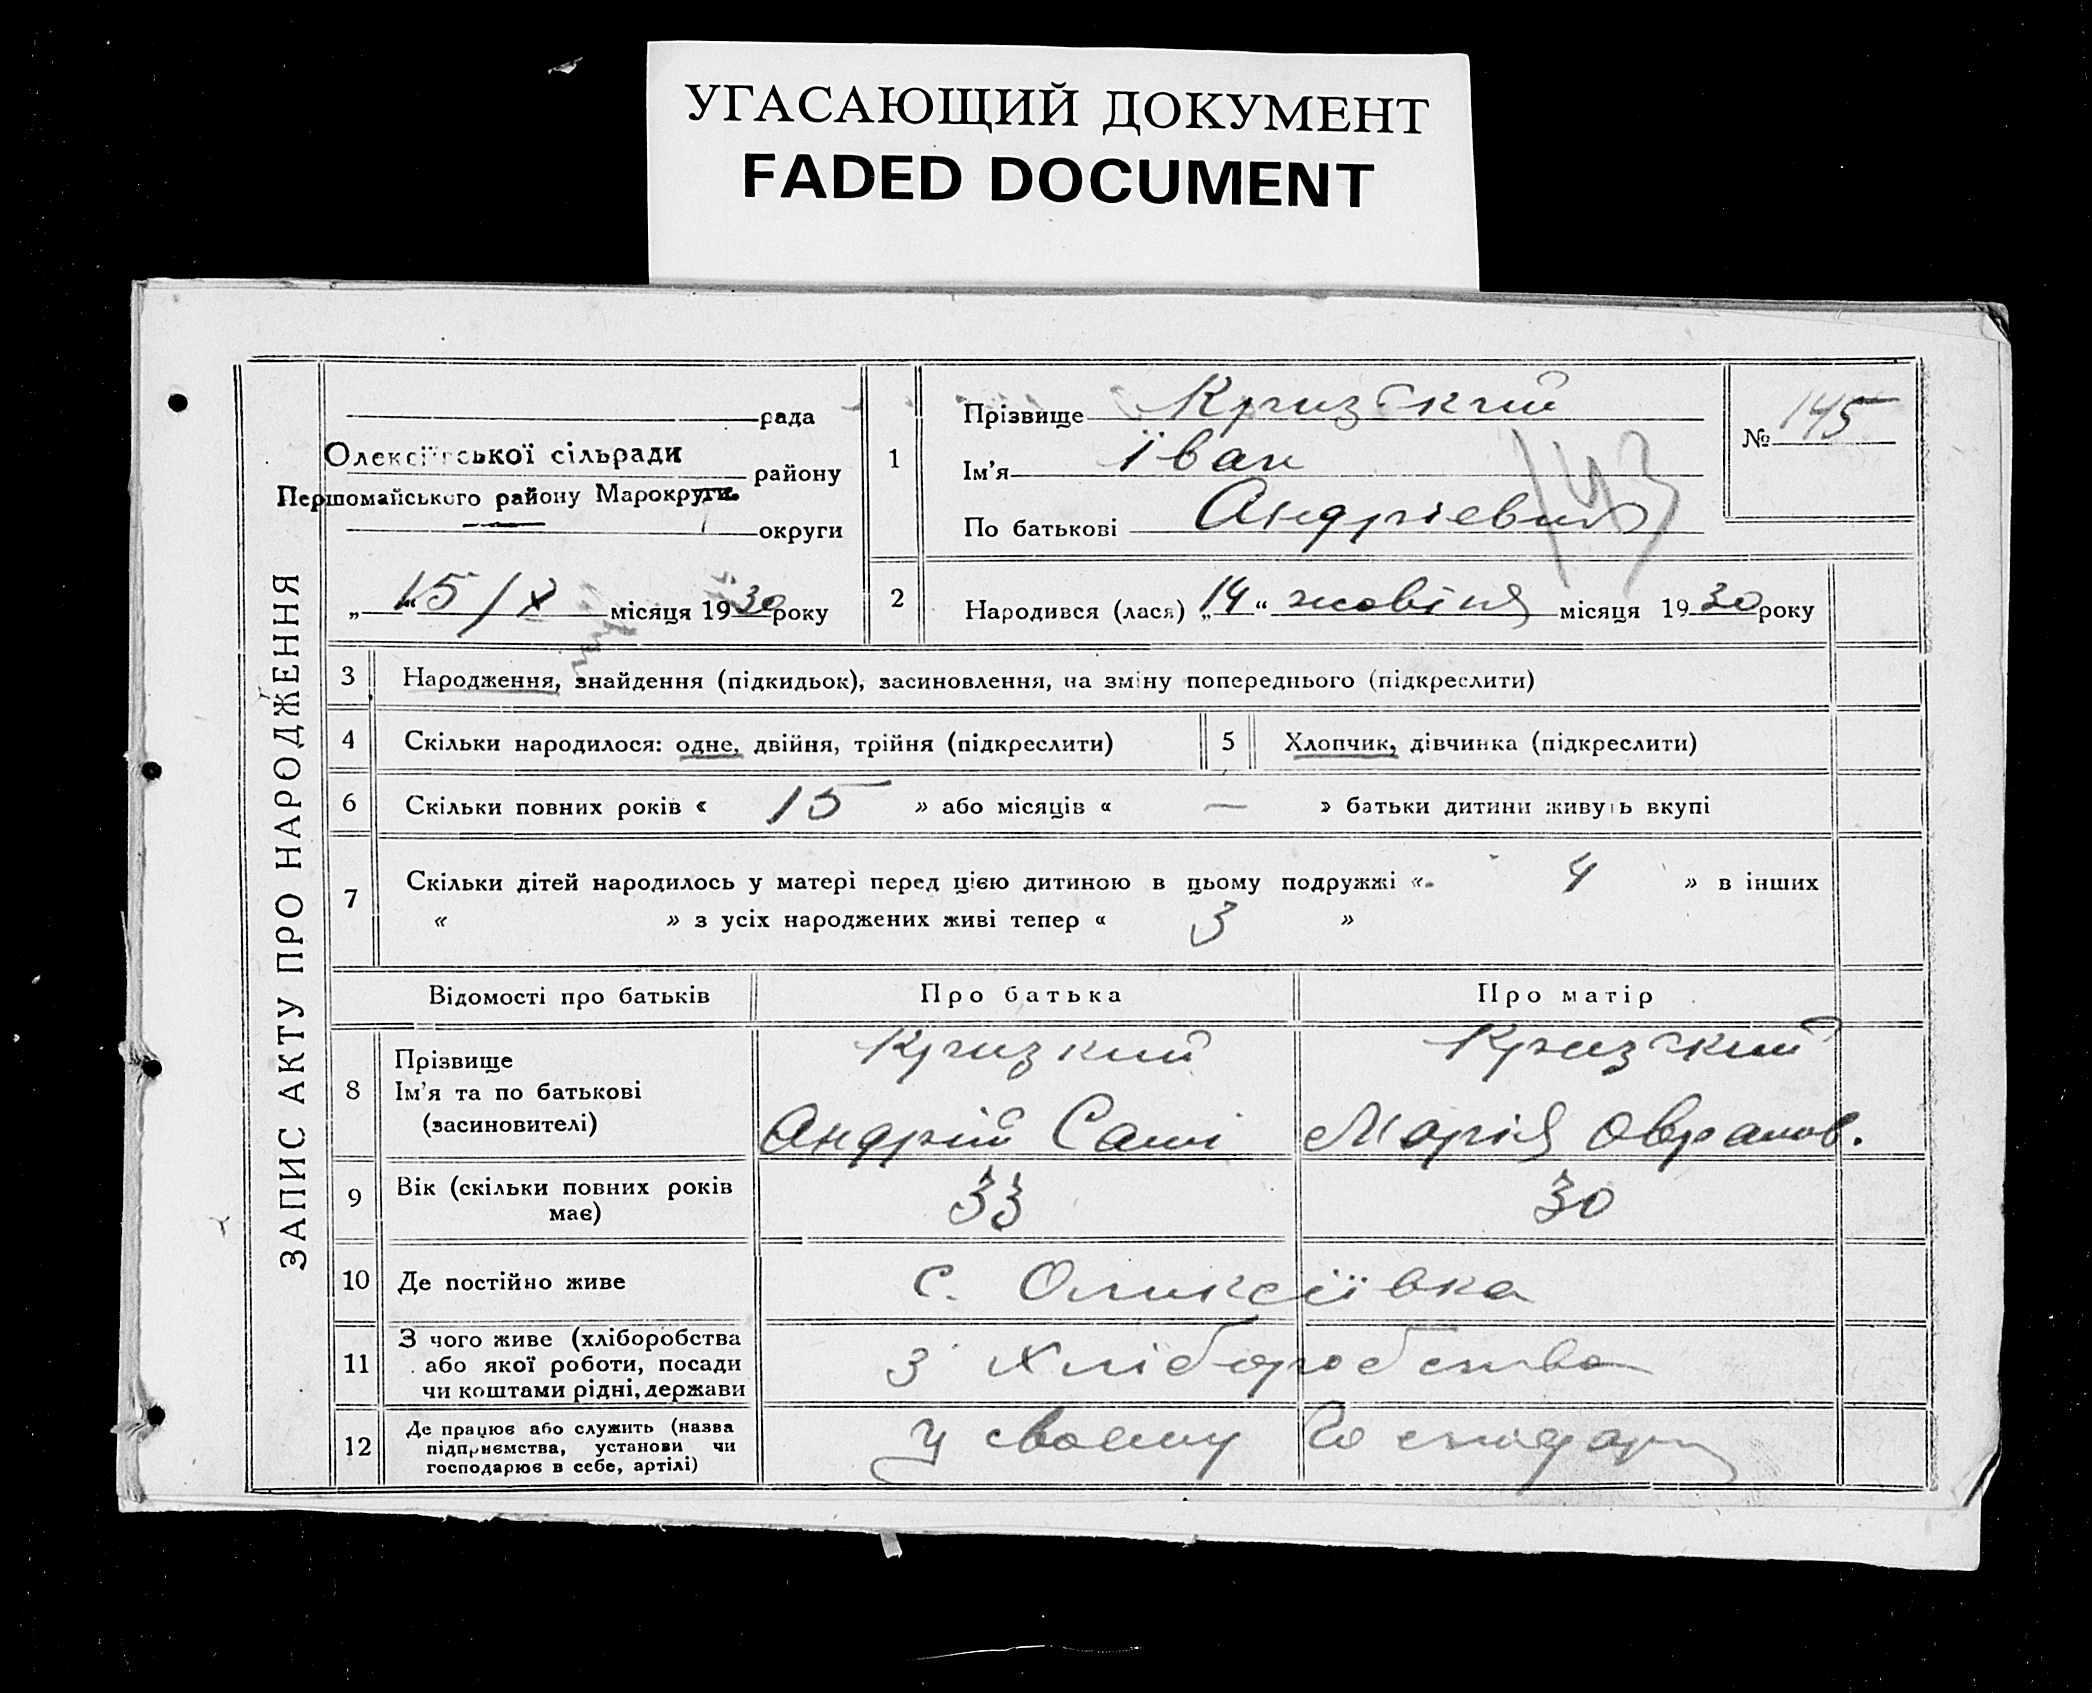 УГАСАЮЩИЙ ДОКУМЕНТ
FADED DOCUMENT
ЗАПИС АКТУ ПРО НАРОДЖЕННЯ
рада
Олексіївської сільради
району
Першомайського району Марокруги.
округи
„15“ / X місяця 1930 року
1
Прізвище Кризский
Ім’я Іван
По батькові Андрієвич
№ 145
143
2
Народився (лася) „14“ жовтня місяця 1930 року
3 Народження, знайдення (підкидьок), засиновлення, на зміну попереднього (підкреслити)
4 Скільки народилося: одне, двійня, трійня (підкреслити)
5 Хлопчик, дівчинка (підкреслити)
6 Скільки повних років « 15 » або місяців « — » батьки дитини живуть вкупі
7 Скільки дітей народилось у матері перед цією дитиною в цьому подружжі « 4 » в інших
« » з усіх народжених живі тепер « 3 »
Відомості про батьків Про батька Про матір
8
Прізвище
Ім’я та по батькові
(засиновителі)
Кризкий
Андрій
Кризский
Марія Аврамов.
9 Вік (скільки повних років
має)
33 30
10 Де постійно живе с. Оликсіївка
11 З чого живе (хліборобства
або якої роботи, посади
чи коштами рідні, держави
з хліборобства
12 Де працює або служить (назва
підприємства, установи чи
господарює в себе, артілі)
У своему господар